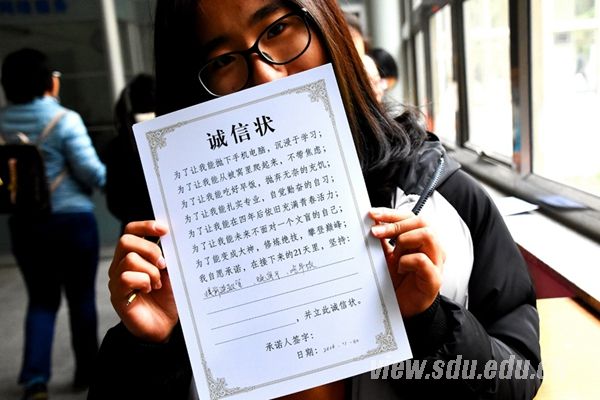 诚信状
为了让我能抛下手机电脑，沉浸于学习；
为了让我能从被窝里爬起来，不带焦虑；
为了让我能吃好早饭，抛弃无奈的充饥；
为了让我能扎实专业，自觉勤奋的自习；
为了让我能在四年后依旧充满青春活力；
为了让我能未来不面对一个文盲的自己；
为了能变成大神，修炼绝技，攀登巅峰；
我自愿承诺，在接下来的21天里，坚持：
，并立此诚信状。
承诺人签字：
日期：
view.sdu.edu.cn